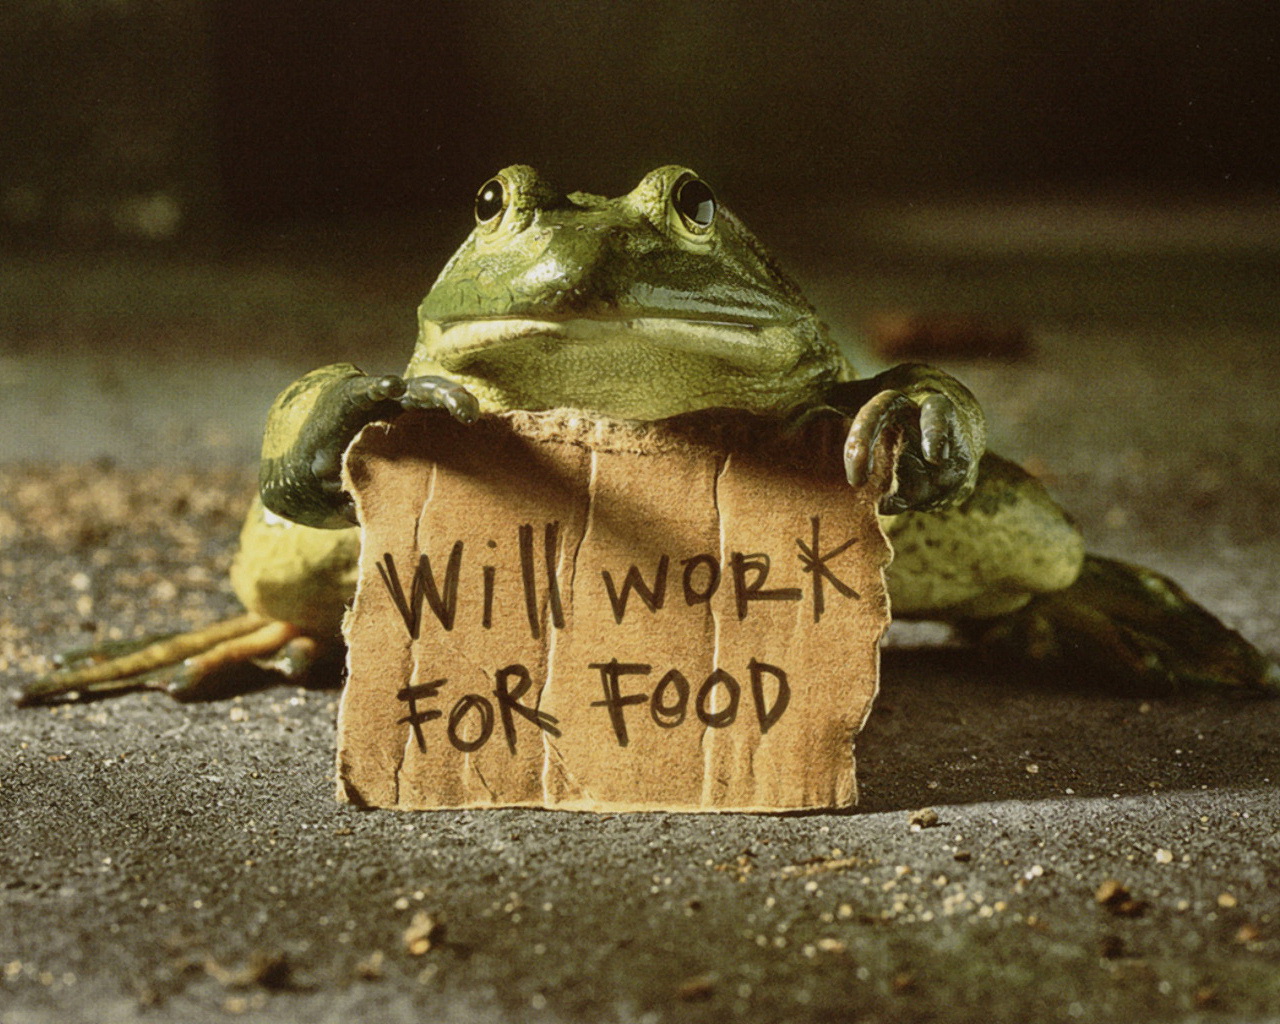 Will work
FOR FOOD